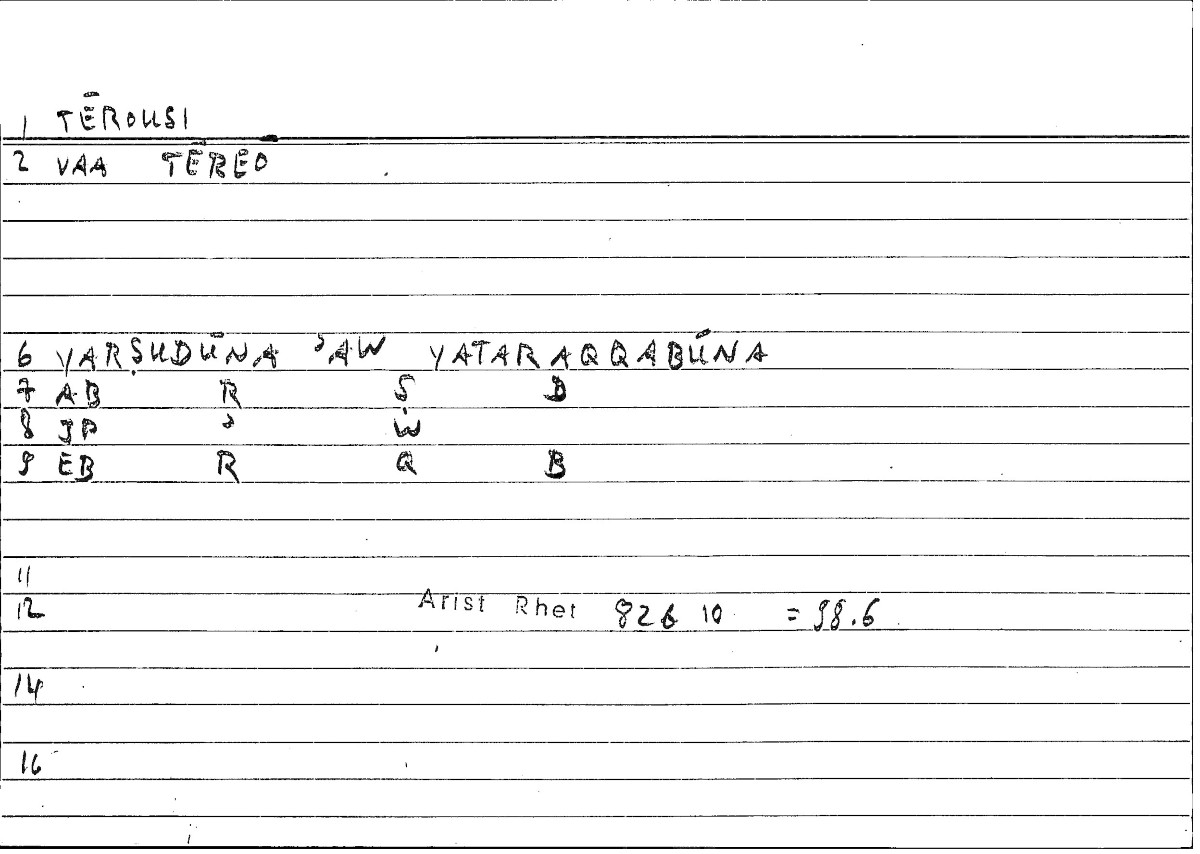 1 TĒROUSI
2 VAA TĒREO
6 YARṢUDŪNA ʾAW YATARAQQABŪNA
7 AB R Ṣ D
8 JP ʾ W
9 EB R Q B
11
12 Arist Rhet 82b 10 = 98.6
14
16